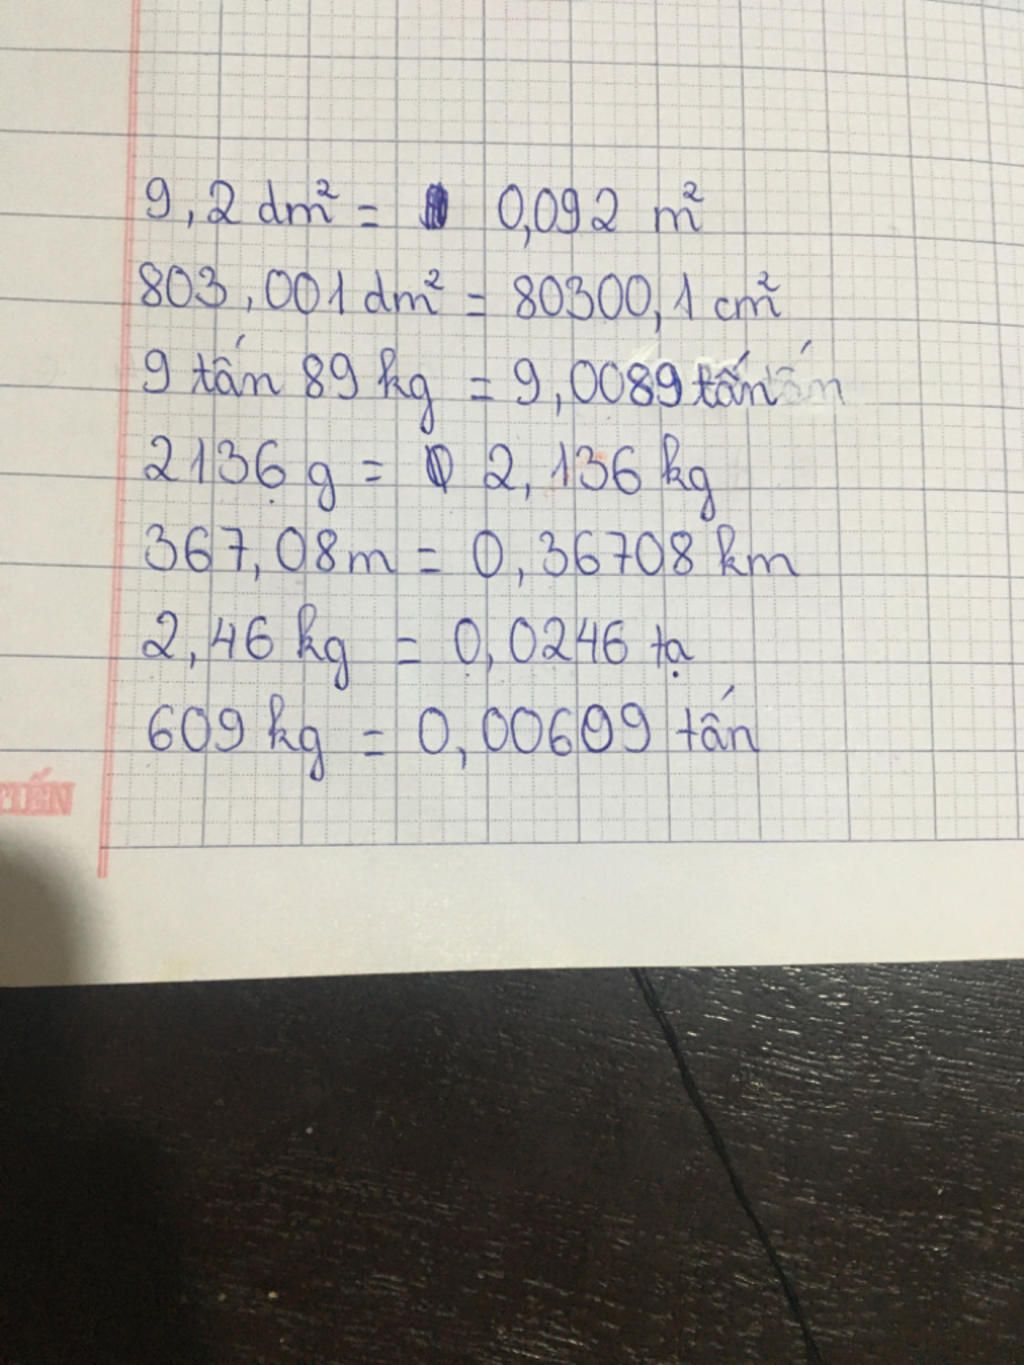 9,2 dm² = 0,092 m²
803,001 dm² = 80300,1 cm²
9 tấn 89 kg = 9,0089 tấn
2136 g = 2,136 kg
367,08 m = 0,36708 km
2,46 kg = 0,0246 tạ
609 kg = 0,00609 tấn
TIẾN